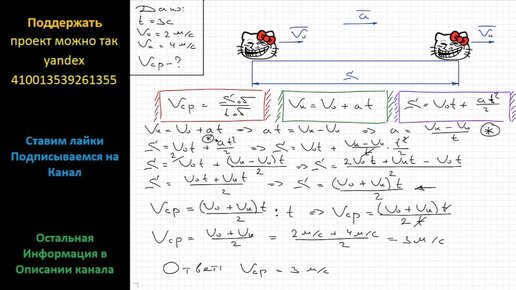 Поддержать
проект можно так
yandex
410013539261355
Ставим лайки
Подписываемся на
Канал
Остальная
Информация в
Описании канала
Дано:
t = 3c
V₀ = 2 м/с
Vк = 4 м/с
Vср - ?
a
V₀ Vк
S
Vср = Sоб/tоб
Vк = V₀ + at
S = V₀t + at²/2
Vк = V₀ + at ⇒ at = Vк - V₀ ⇒ a = (Vк - V₀)/t *
S = V₀t + at²/2 ⇒ S = V₀t + (Vк - V₀)/t · t²/2
S = V₀t + (Vк - V₀)t/2 ⇒ S = (2V₀t + Vкt - V₀t)/2
S = (V₀t + Vкt)/2 ⇒ S = (V₀ + Vк)t/2
Vср = (V₀ + Vк)t/2 : t ⇒ Vср = (V₀ + Vк)t/2t
Vср = (V₀ + Vк)/2 = (2 м/с + 4 м/с)/2 = 3 м/с
Ответ: Vср = 3 м/с